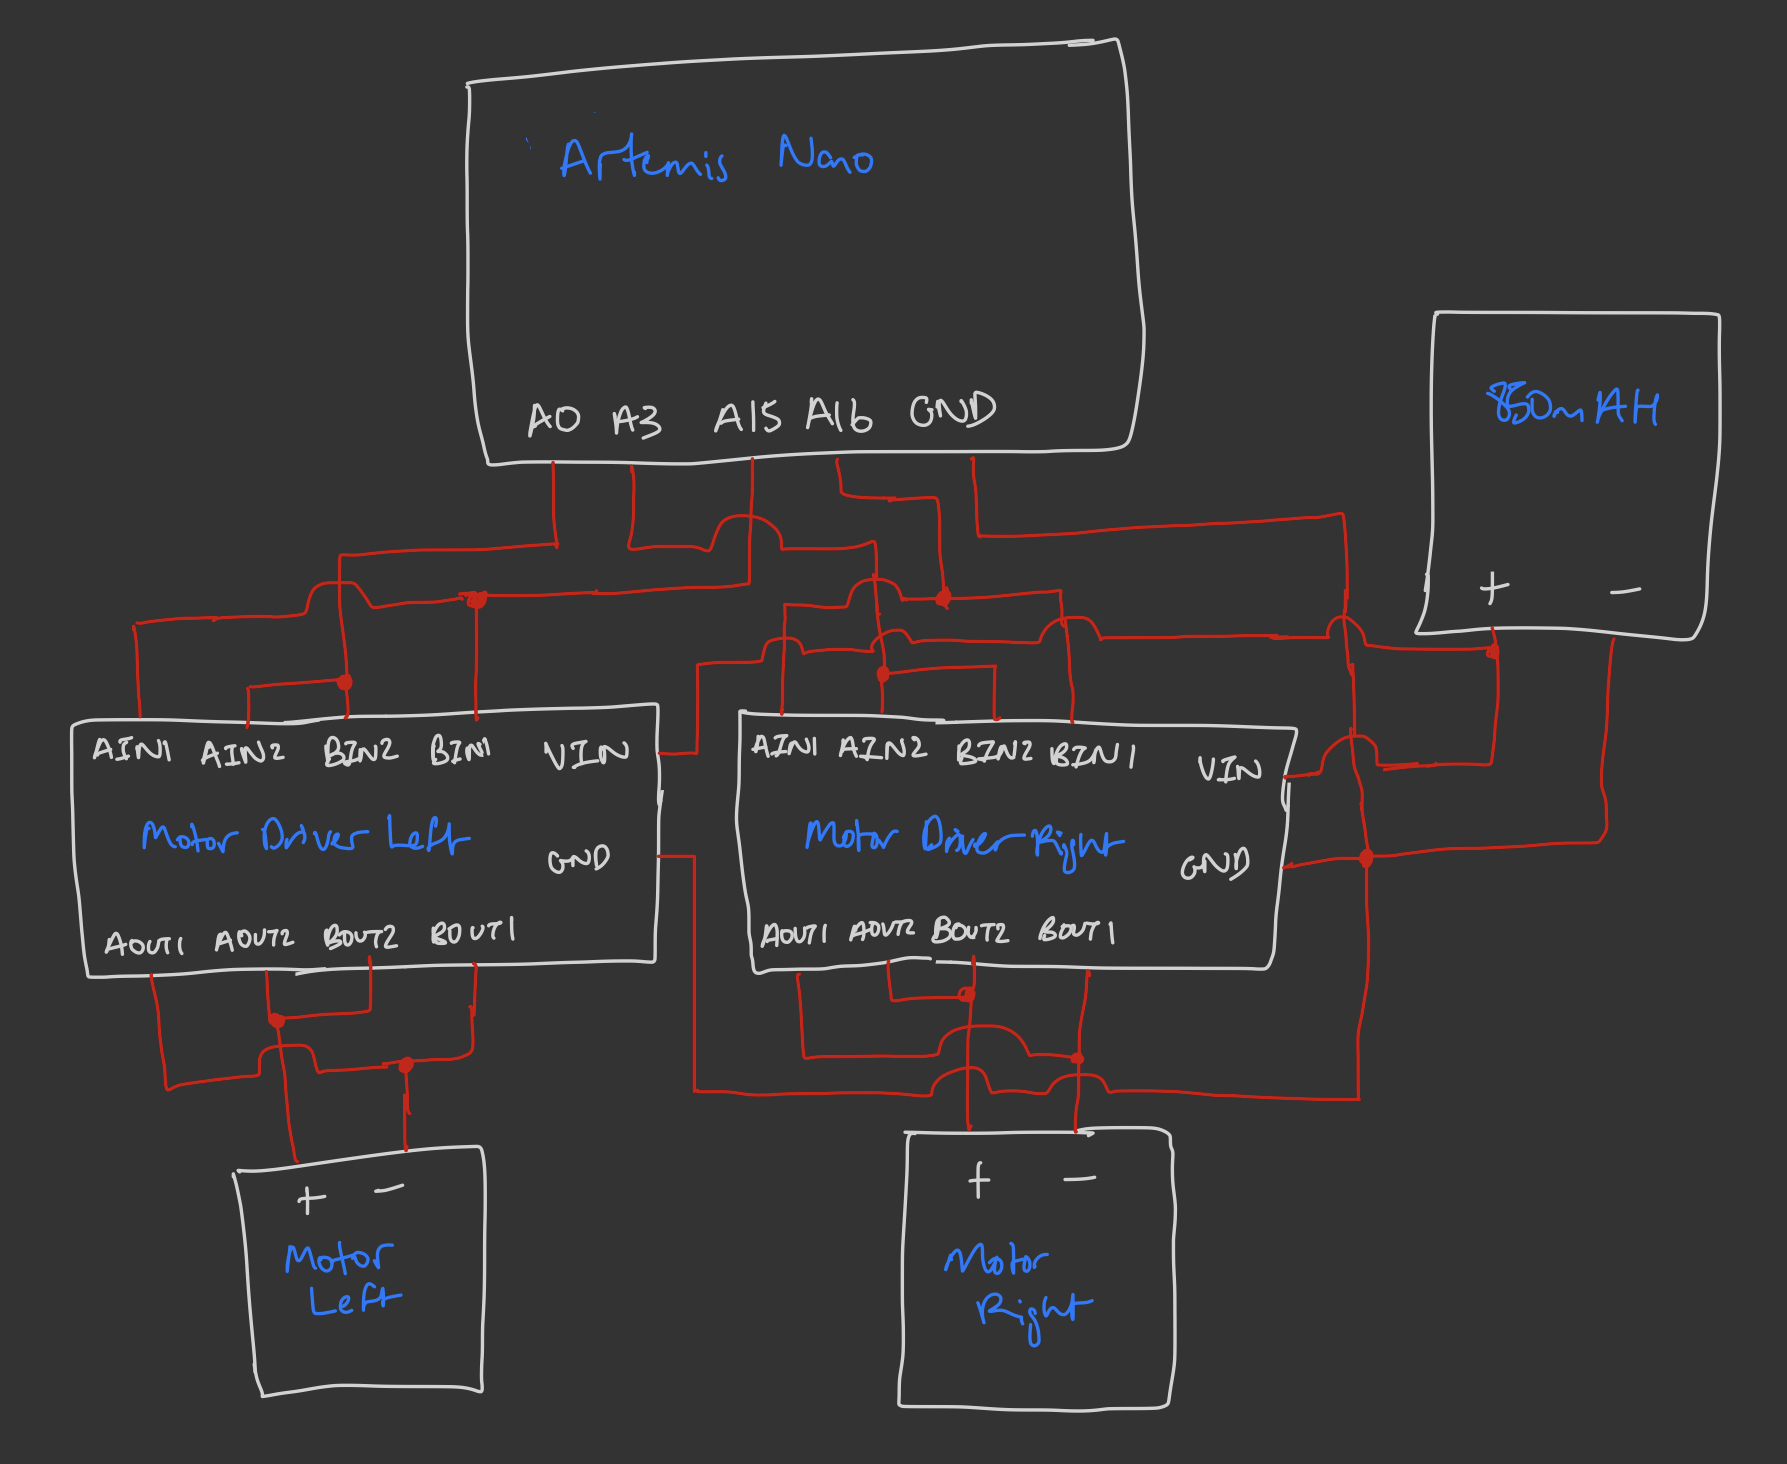 Artemis Nano
A0 A3 A15 A16 GND
850mAH
+ −
AIN1 AIN2 BIN2 BIN1 VIN
Motor Driver Left
GND
AOUT1 AOUT2 BOUT2 BOUT1
AIN1 AIN2 BIN2 BIN1 VIN
Motor Driver Right
GND
AOUT1 AOUT2 BOUT2 BOUT1
+ −
Motor
Left
+ −
Motor
Right